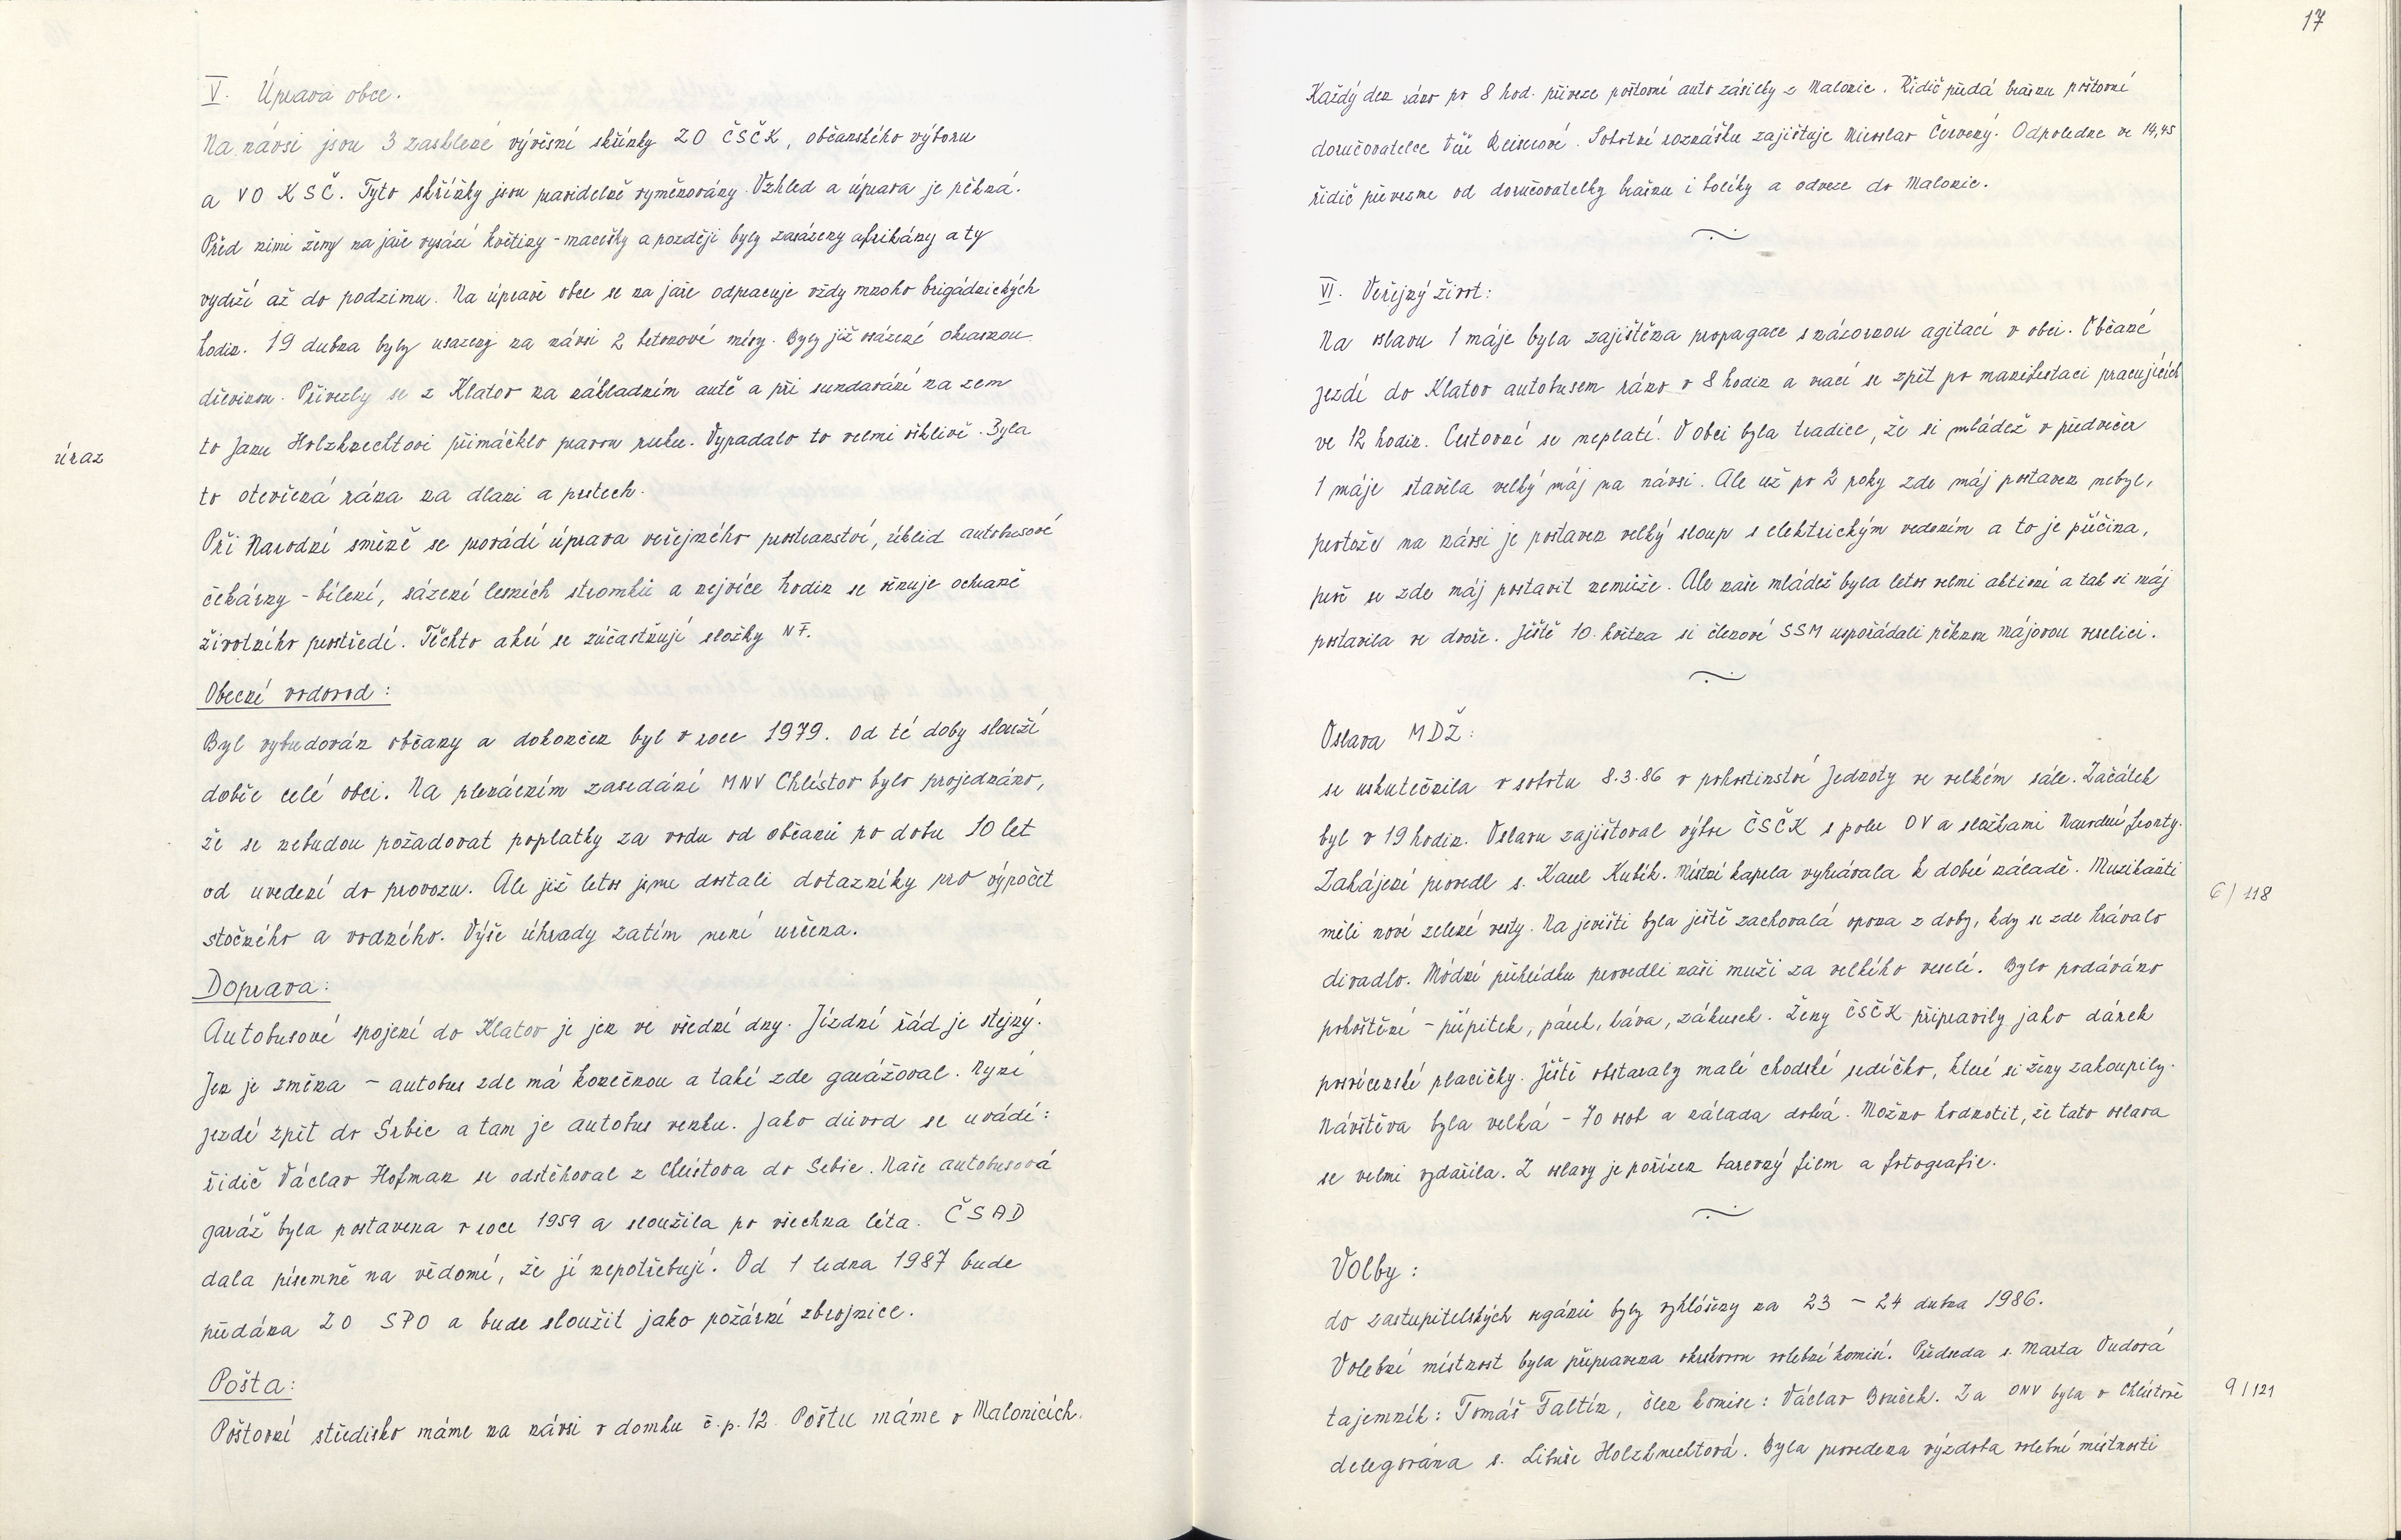 V. Úprava obce.
Na návsi jsou 3 zasklené vývěsní skřínky ZO ČSČK, občanského výboru
a VO KSČ. Tyto skříňky jsou pravidelně vyměňovány. Vzhled a úprava je pěkná.
Před nimi ženy na jaře vysází květiny - macešky a později byly zasázeny afrikány a ty
vydrží až do podzimu. Na úpravě obce se na jaře odpracuje vždy mnoho brigádnických
hodin. 19 dubna byly usazeny na návsi 2 betonové mísy. Byly již osázené okrasnou
dřevinou. Přivezly se z Klatov na nákladním autě a při sundavání na zem
to Janu Holzknechtovi přimáčklo pravou ruku. Vypadalo to velmi ošklivě. Byla
úraz
to otevřená rána na dlani a prstech.
Při Narodní směně se provádí úprava veřejného prostranství, úklid autobusové
čekárny - bílení, sázení lesních stromků a nejvíce hodin se věnuje ochraně
životního prostředí. Těchto akcí se zúčastňují složky NF.
Obecní vodovod:
Byl vybudován občany a dokončen byl v roce 1979. Od té doby slouží
dobře celé obci. Na plenárním zasedání MNV Chlístov bylo projednáno,
že se nebudou požadovat poplatky za vodu od občanů po dobu 10 let
od uvedení do provozu. Ale již letos jsme dostali dotazníky pro výpočet
stočného a vodného. Výše úhrady zatím není určena.
Doprava:
Autobusové spojení do Klatov je jen ve všední dny. Jízdní řád je stejný.
Jen je změna - autobus zde má konečnou a také zde garážoval. Nyní
jezdí zpět do Srbic a tam je autobus venku. Jako důvod se uvádí:
řidič Václav Hofman se odstěhoval z Chlístova do Srbic. Naše autobusová
garáž byla postavena v roce 1959 a sloužila po všechna léta. ČSAD
dala písemně na vědomí, že jí nepotřebují. Od 1 ledna 1987 bude
předána ZO SPO a bude sloužit jako požární zbrojnice.
Pošta:
Poštovní středisko máme na návsi v domku č.p. 12. Poštu máme v Malonicích.
17
Každý den ráno po 8 hod. přiveze poštovní auto zásilky z Malonic. Řidič předá brašnu poštovní
doručovatelce Věře Reiserové. Sobotní roznášku zajištuje Miroslav Červený. Odpoledne ve 14,45
řidič převezme od doručovatelky brašnu i balíky a odveze do Malonic.
VI. Veřejný život:
Na oslavu 1 máje byla zajištěna propagace s názornou agitací v obci. Občané
jezdí do Klatov autobusem ráno v 8 hodin a vrací se zpět po manifestaci pracujících
ve 12 hodin. Cestovné se neplatí. V obci byla tradice, že si mládež v předvečer
1 máje stavěla velký máj na návsi. Ale už po 2 roky zde máj postaven nebyl,
protože na návsi je postaven velký sloup s elektrickým vedením a to je příčina,
proč se zde máj postavit nemůže. Ale naše mládež byla letos velmi aktivní a tak si máj
postavila ve dvoře. Ještě 10. května si členové SSM uspořádali pěknou májovou veselici.
Oslava MDŽ:
se uskutečnila v sobotu 8.3.86 v pohostinství Jednoty ve velkém sále. Začátek
byl v 19 hodin. Oslavu zajištoval výbor ČSČK spolu OV a složkami Narodní fronty.
Zahájení provedl s. Karel Kubík. Místní kapela vyhrávala k dobré náladě. Muzikanti
6/118
měli nové zelené vesty. Na jevišti byla ještě zachovalá opona z doby, kdy se zde hrávalo
divadlo. Módní přehlídku provedli naši muži za velkého veselí. Bylo podáváno
pohoštění - přípitek, párek, káva, zákusek. Ženy ČSČK připravily jako dárek
posvícenské placičky. Ještě obstaraly malé chodské srdíčko, které si ženy zakoupily.
Návštěva byla velká - 70 osob a nálada dobrá. Možno hodnotit, že tato oslava
se velmi vydařila. Z oslavy je pořízen barevný film a fotografie.
Volby:
do zastupitelských orgánů byly vyhlášeny na 23 - 24 dubna 1986.
Volební místnost byla připravena okrskovou volební komisí. Předseda s. Marta Dudová
tajemník: Tomáš Faltín, člen komise: Václav Brůček. Za ONV byla v Chlístově
9/121
delegována s. Libuše Holzknechtová. Byla provedena výzdoba volební místnosti